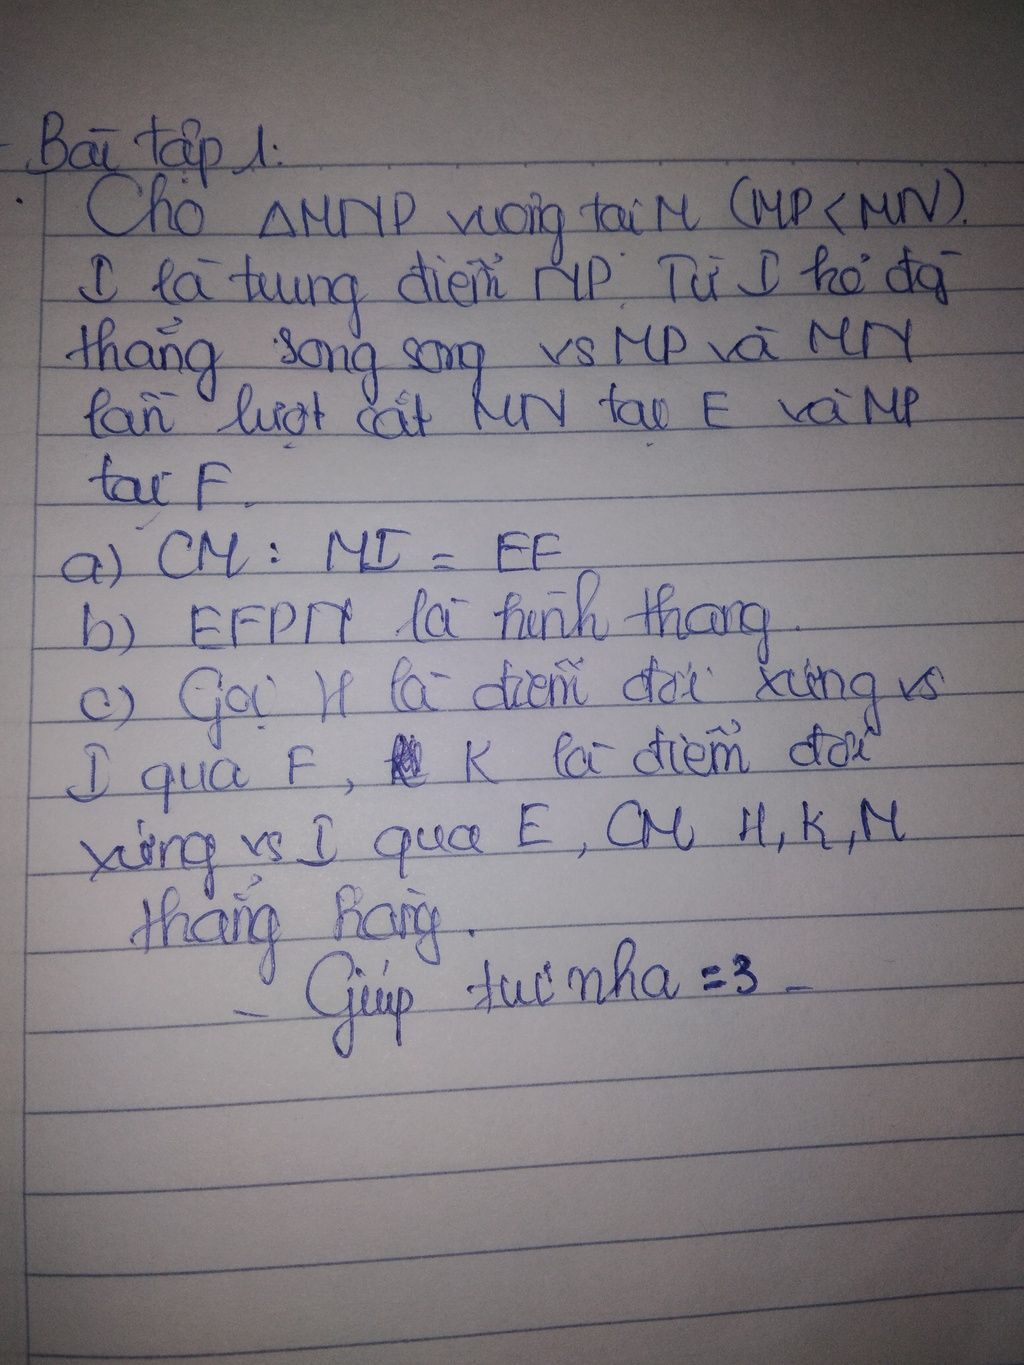 Bài tập 1:
Cho ΔMNP vuông tại M (MP < MN).
I là trung điểm NP. Từ I kẻ đg̀
thẳng song song vs MP và MN
lần lượt cắt MN tại E và MP
tại F.
a) CM : MI = EF
b) EFPN là hình thang.
c) Gọi H là điểm đối xứng vs
I qua F, K là điểm đối
xứng vs I qua E, CM H, K, M
thẳng hàng.
- Giúp tui nha =3 -